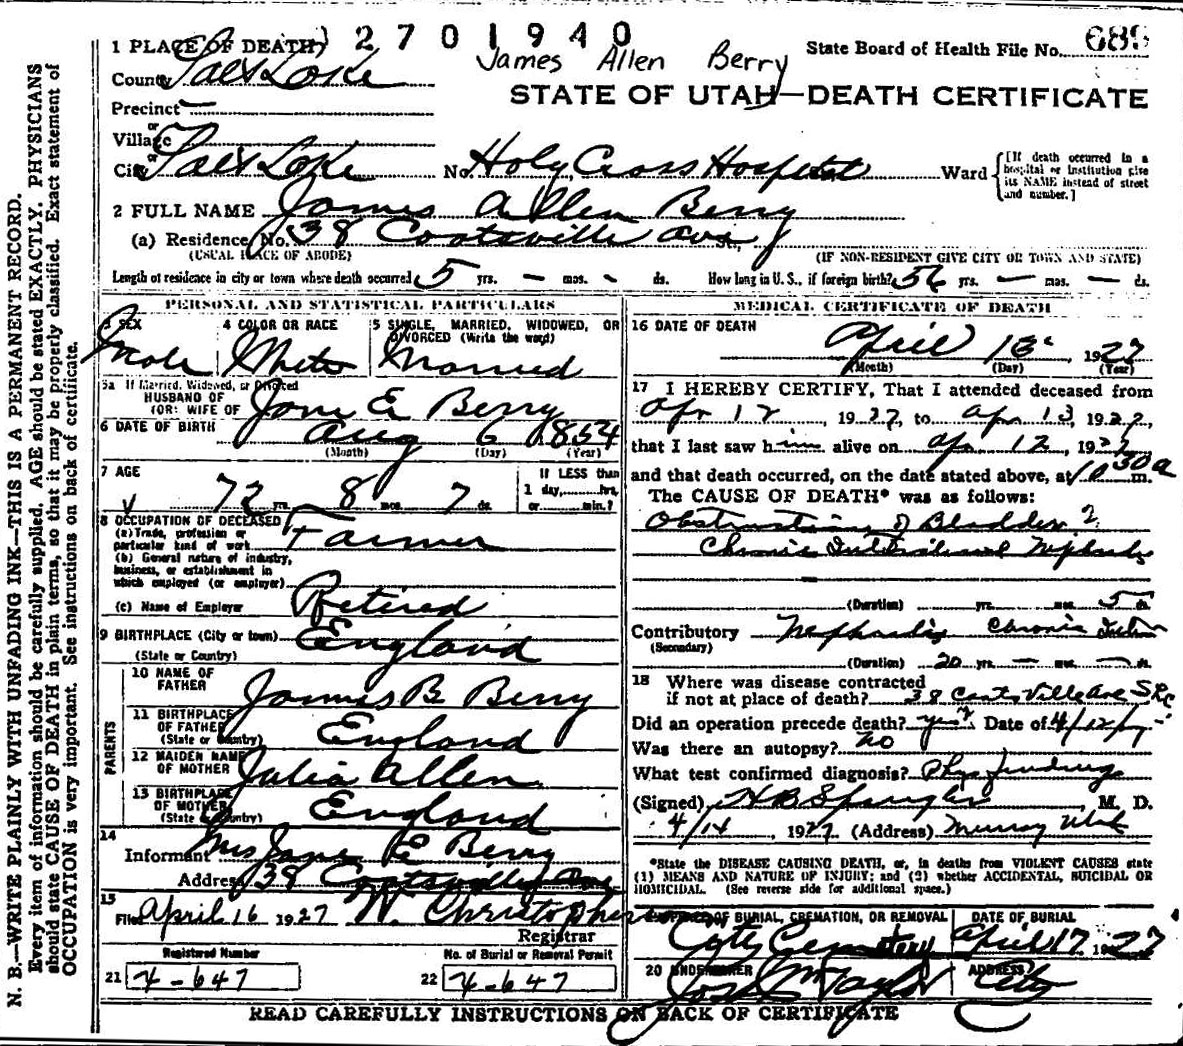 2701940
James Allen Berry
State Board of Health File No.
STATE OF UTAH—DEATH CERTIFICATE
1 PLACE OF DEATH
County Salt Lake
Precinct —
or
Village
or
City Salt Lake No. Holy Cross Hospital Ward [If death occurred in a hospital or institution give its NAME instead of street and number.]
2 FULL NAME James Allen Berry
(a) Residence, No. 38 Coatsville Ave
(USUAL PLACE OF ABODE) (IF NON-RESIDENT GIVE CITY OR TOWN AND STATE)
Length of residence in city or town where death occurred 5 yrs. — mos. - ds. How long in U. S., if foreign birth? 56 yrs. — mos. — ds.
PERSONAL AND STATISTICAL PARTICULARS
3 SEX
Male
4 COLOR OR RACE
White
5 SINGLE, MARRIED, WIDOWED, OR DIVORCED (Write the word)
Married
5a If Married, Widowed, or Divorced
HUSBAND OF
(OR) WIFE OF Jane E Berry
6 DATE OF BIRTH Aug 6 1854
(Month) (Day) (Year)
7 AGE
72 yrs. 8 mos. 7 ds.
If LESS than
1 day, hrs.
or min.?
8 OCCUPATION OF DECEASED
(a) Trade, profession or
particular kind of work Farmer
(b) General nature of industry,
business, or establishment in
which employed (or employer)
Retired
(c) Name of Employer
9 BIRTHPLACE (City or town) England
(State or Country)
PARENTS
10 NAME OF
FATHER James B Berry
11 BIRTHPLACE
OF FATHER England
(State or Country)
12 MAIDEN NAME
OF MOTHER Julia Allen
13 BIRTHPLACE
OF MOTHER England
(State or Country)
14
Informant Mrs Jane E Berry
Address 38 Coatsville Ave
15
Filed April 16 1927 W. Christopherson
Registrar
Registered Number
21 4-647
No. of Burial or Removal Permit
22 4-647
MEDICAL CERTIFICATE OF DEATH
16 DATE OF DEATH
April 1927
(Month) (Day) (Year)
17 I HEREBY CERTIFY, That I attended deceased from
Apr 12, 1927, to Apr 13, 1927,
that I last saw him alive on Apr 12, 1927
and that death occurred, on the date stated above, at 10 30a m.
The CAUSE OF DEATH* was as follows:
Obstruction of Bladder
Chronic Interstitial Nephritis
(Duration) yrs. mos. 5 ds.
Contributory Nephritis Chronic
(Secondary)
(Duration) 20 yrs. — mos. — ds.
18 Where was disease contracted
if not at place of death? 38 Coats Ville Ave SLC
Did an operation precede death? yes Date of 4/12/27
Was there an autopsy? no
What test confirmed diagnosis? Phys findings
(Signed) H B Spengler, M. D.
4/14, 1927 (Address) Murray Utah
*State the DISEASE CAUSING DEATH, or, in deaths from VIOLENT CAUSES state
(1) MEANS AND NATURE OF INJURY; and (2) whether ACCIDENTAL, SUICIDAL OR
HOMICIDAL. (See reverse side for additional space.)
OF BURIAL, CREMATION, OR REMOVAL
City Cemetery
DATE OF BURIAL
April 17 1927
20 UNDERTAKER
Jos Wm Taylor
ADDRESS
City
READ CAREFULLY INSTRUCTIONS ON BACK OF CERTIFICATE
N. B.—WRITE PLAINLY WITH UNFADING INK—THIS IS A PERMANENT RECORD.
Every item of information should be carefully supplied. AGE should be stated EXACTLY. PHYSICIANS
should state CAUSE OF DEATH in plain terms, so that it may be properly classified. Exact statement of
OCCUPATION is very important. See instructions on back of certificate.